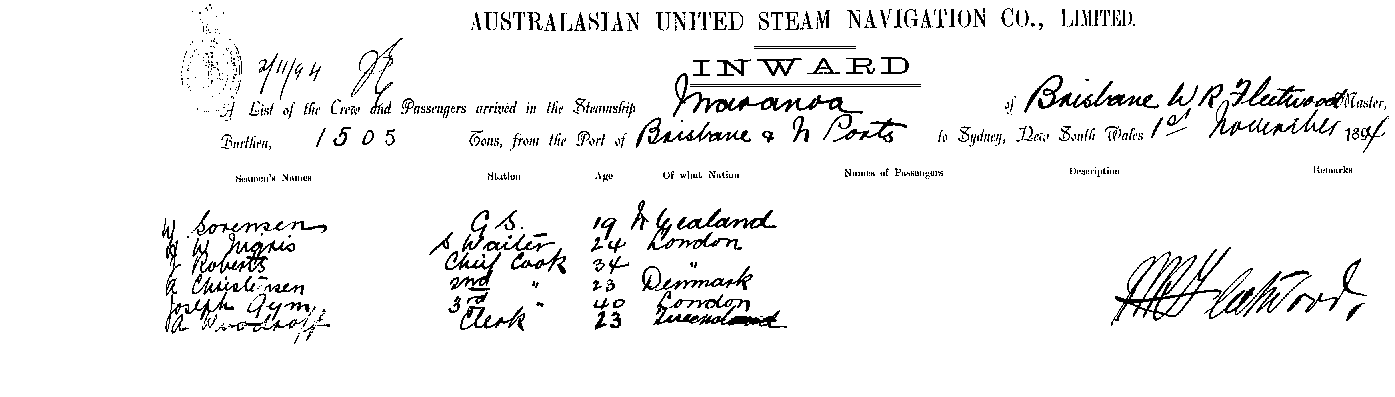 AUSTRALASIAN UNITED STEAM NAVIGATION CO., LIMITED.
2/11/94
INWARD
A List of the Crew and Passengers arrived in the Steamship Maranoa of Brisbane W R Fleetwood Master,
Burthen, 1505 Tons, from the Port of Brisbane & N Ports to Sydney, New South Wales 1st November 1894
Seamen's Names Station Age Of what Nation Names of Passengers Description Remarks
W Sorensen G S. 19 N Zealand
W Ingris S Waiter 24 London
J Roberts Chief Cook 34 "
A Christensen 2nd " 23 Denmark
Joseph Gym 3rd " 40 London
A Woodroff Clerk 23 Queensland
WR Fleetwood,